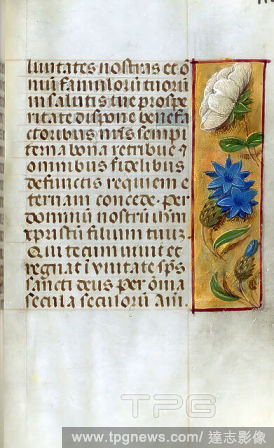 luntates nostras et o
m̄iū famulorū tuorū
in salutis tue prospe
ritate dispone benefa
ctoribus n̄ris sempi
terna bona retribue ⁊
omnibus fidelibus
defunctis requiem e
ternam concede. per
dominū nostrū ihm̄
xp̄istū filium tuūʒ
Qui tecum uiuit et
regnat ī vnitate sp̄s
sancti deus per om̄ia
secula seculorū am̄.
TPG
www.tpgnews.com/達志影像